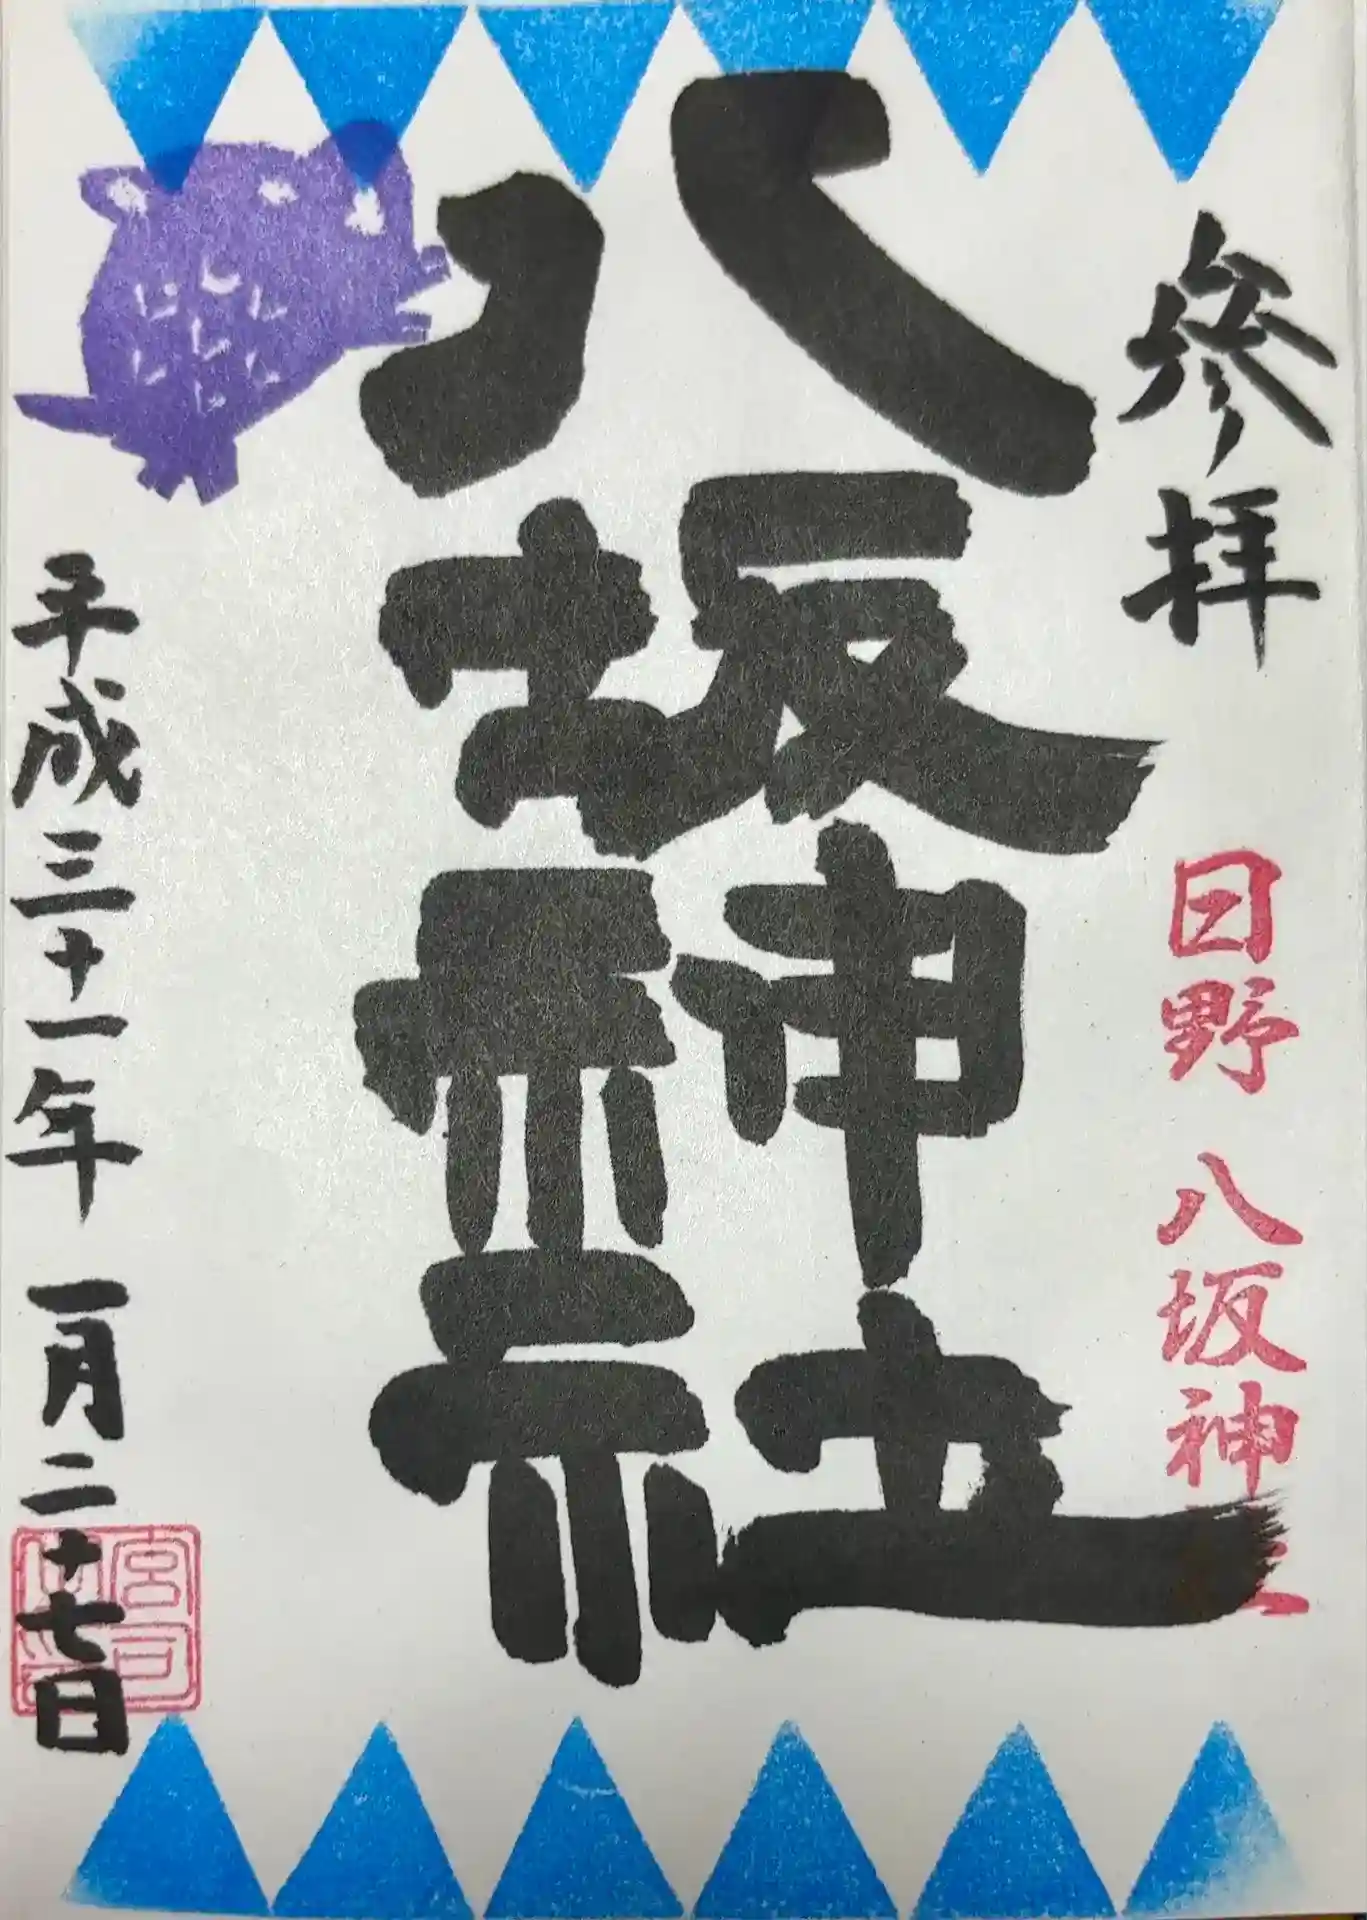 參拝
日野 八坂神社
八坂神社
平成三十一年 一月二十七日
宮司